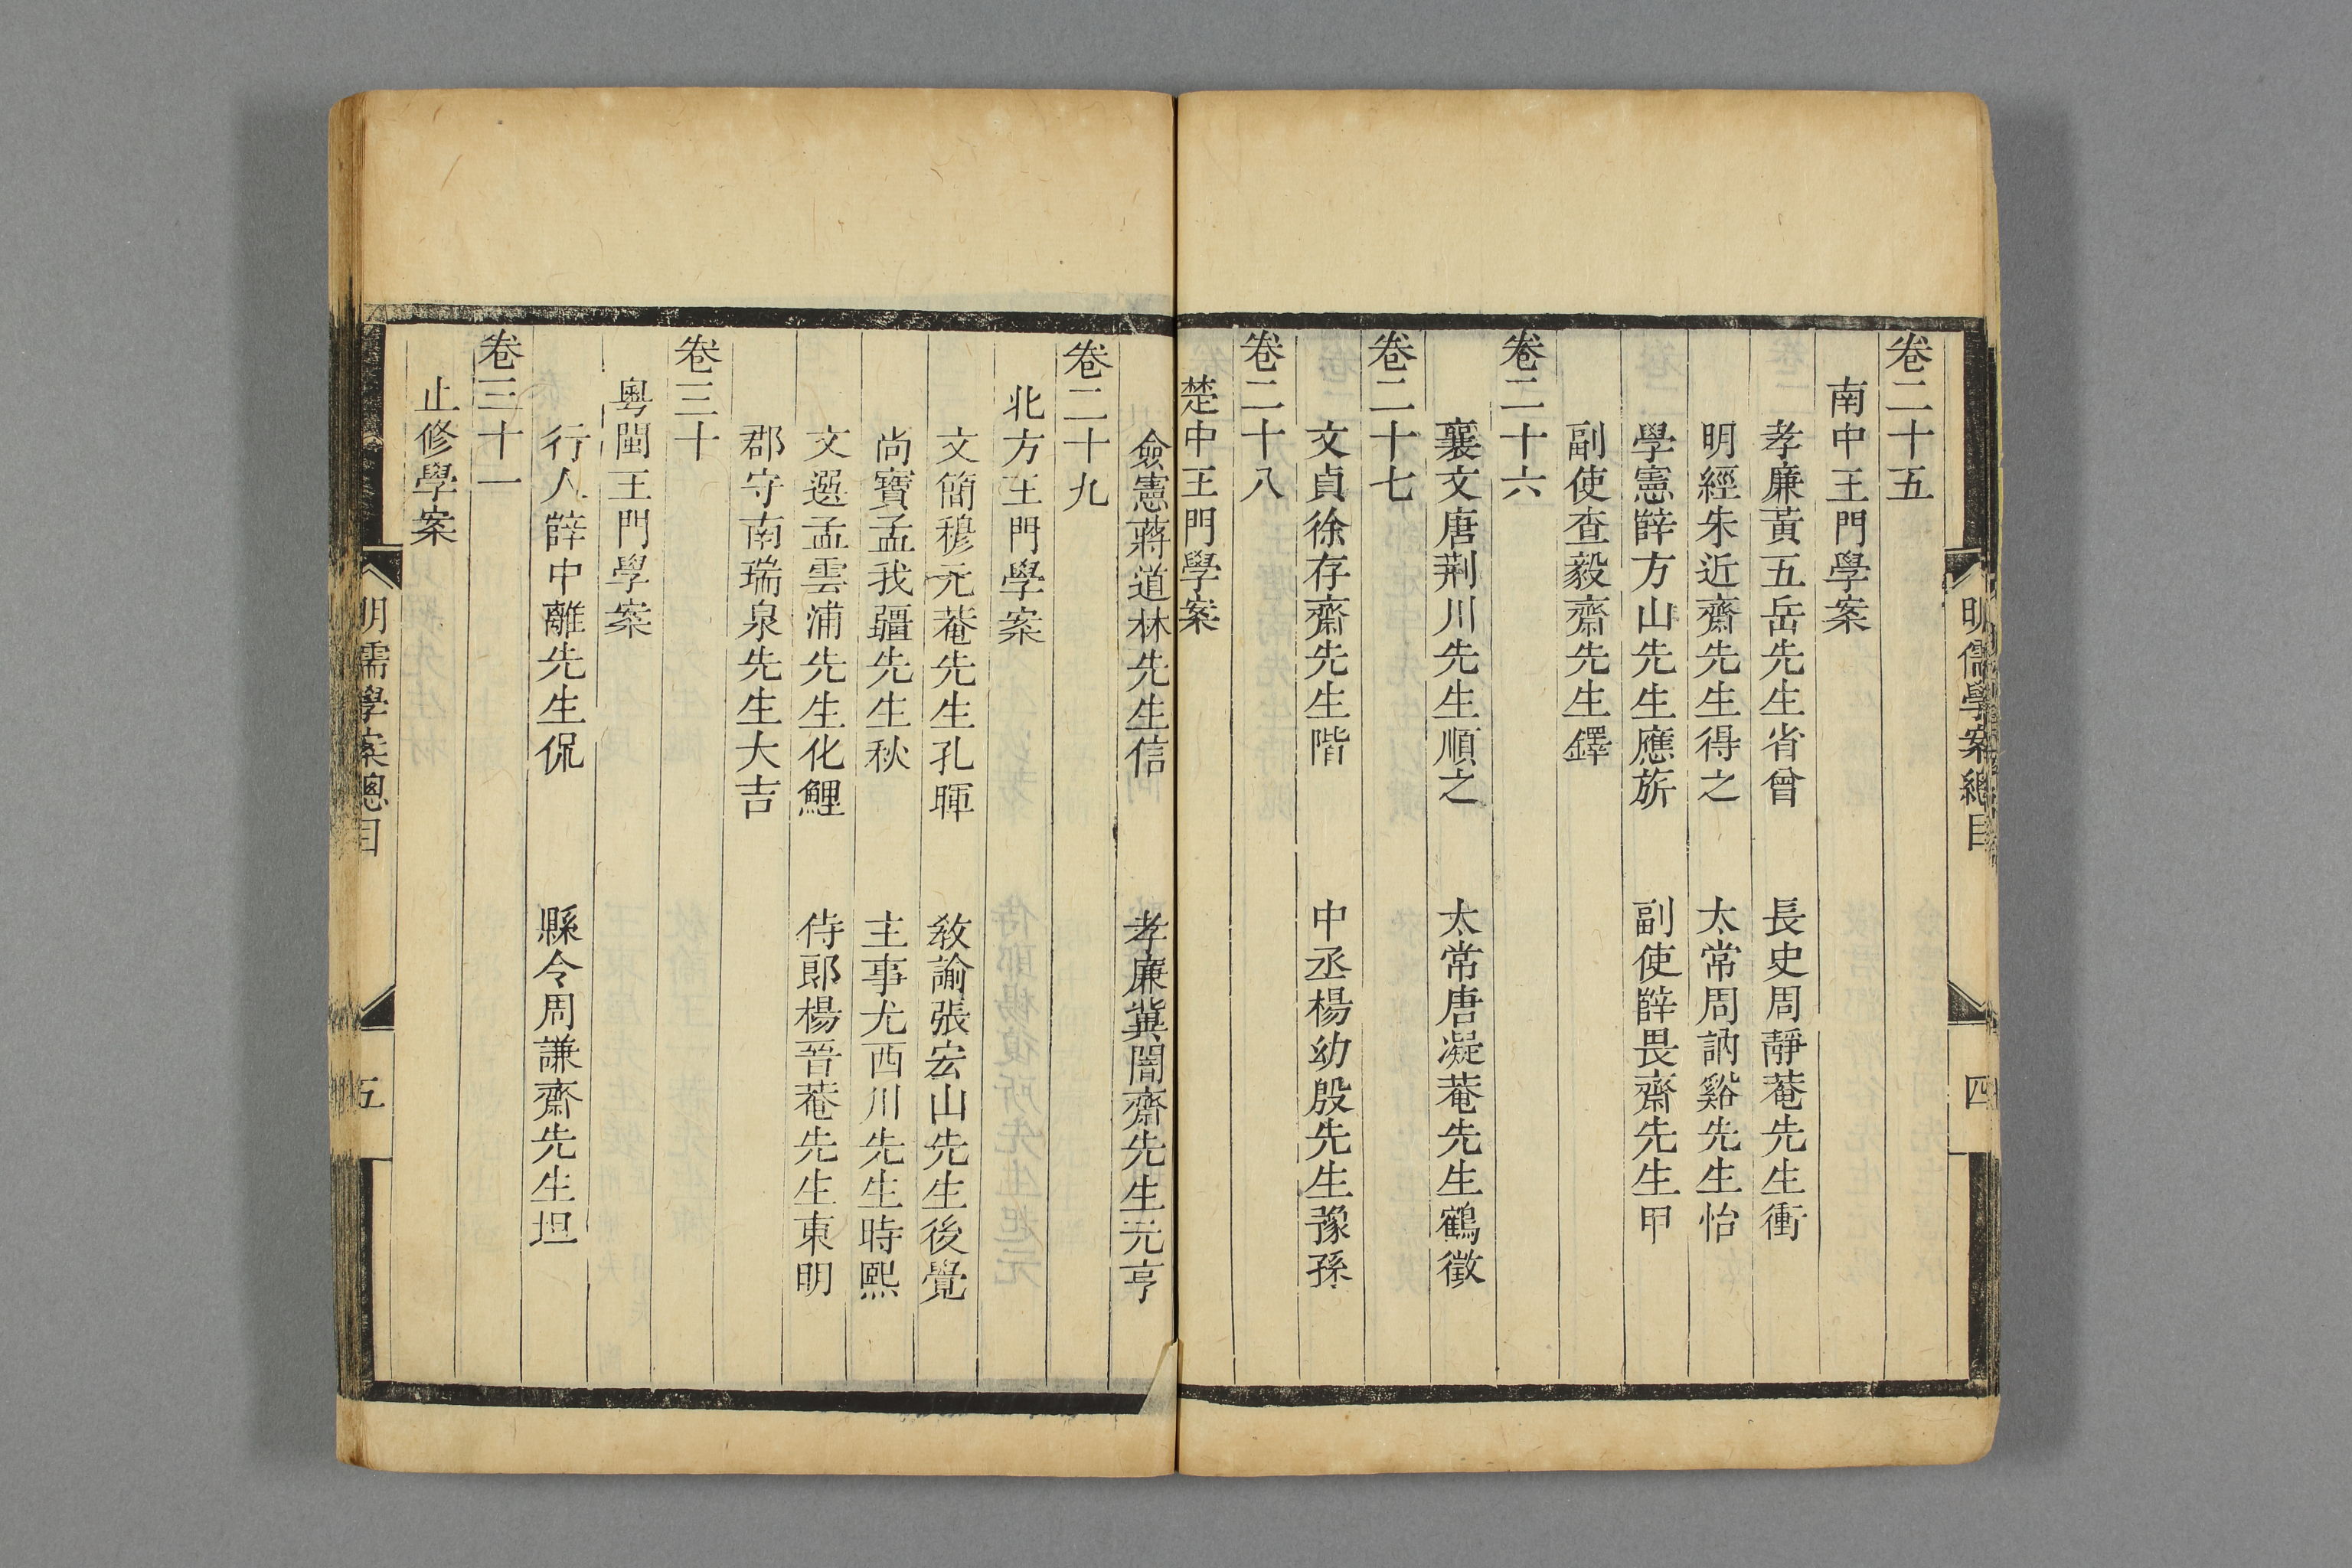 明儒學案總目
四
卷二十五
南中王門學案
孝廉黃五岳先生省曾 長史周靜菴先生衝
明經朱近齋先生得之 太常周訥谿先生怡
學憲薛方山先生應旂 副使薛畏齋先生甲
副使查毅齋先生鐸
卷二十六
襄文唐荆川先生順之 太常唐凝菴先生鶴徵
卷二十七
文貞徐存齋先生階 中丞楊幼殷先生豫孫
卷二十八
楚中王門學案
僉憲蔣道林先生信 孝廉冀闇齋先生元亨
卷二十九
北方王門學案
文簡穆元菴先生孔暉 教諭張宏山先生後覺
尚寶孟我疆先生秋 主事尤西川先生時熙
文選孟雲浦先生化鯉 侍郎楊晉菴先生東明
郡守南瑞泉先生大吉
卷三十
粵閩王門學案
行人薛中離先生侃 縣令周謙齋先生坦
卷三十一
止修學案
明儒學案總目
五